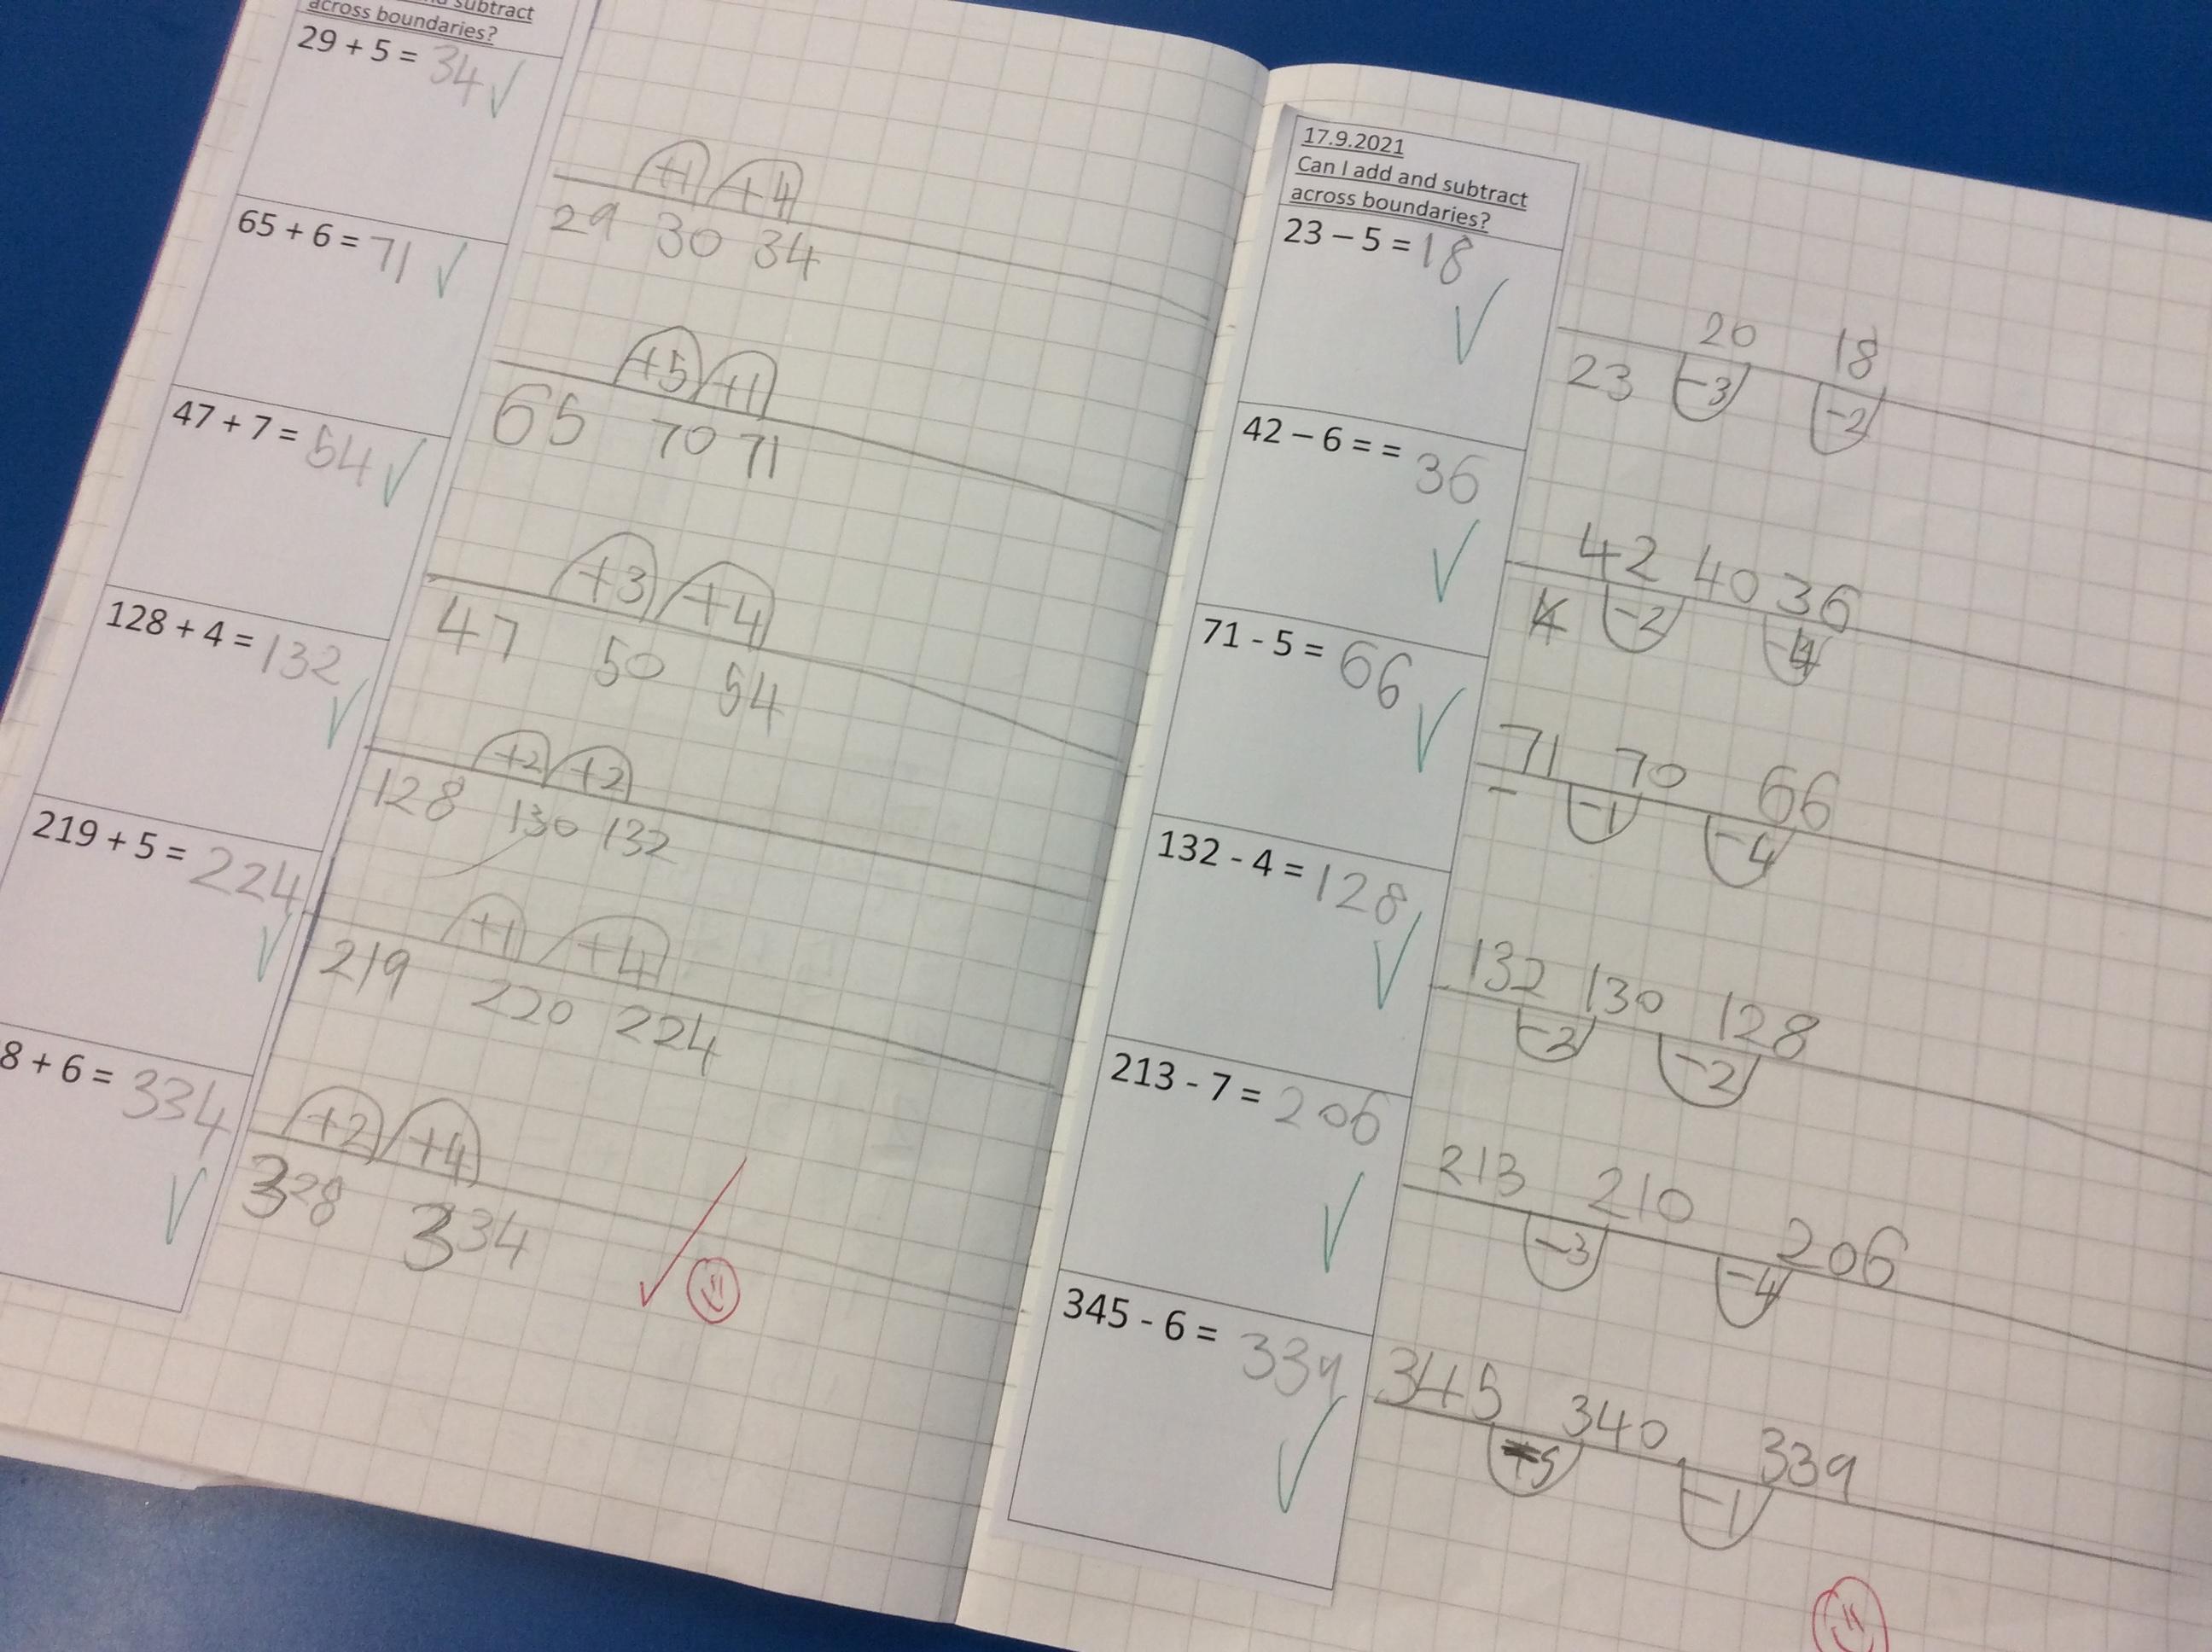 subtract
across boundaries?
29 + 5 = 34
+1 +4
29 30 34
65 + 6 = 71
+5 +1
65 70 71
47 + 7 = 54
+3 +4
47 50 54
128 + 4 = 132
+2 +2
128 130 132
219 + 5 = 224
+1 +4
219 220 224
8 + 6 = 334
+2 +4
328 334
17.9.2021
Can I add and subtract
across boundaries?
23 – 5 = 18
20 18
23 -3 -2
42 – 6 = = 36
42 40 36
-2 -4
71 - 5 = 66
71 70 66
- -1 -4
132 - 4 = 128
132 130 128
-2 -2
213 - 7 = 206
213 210 206
-3 -4
345 - 6 = 339
345 340 339
-5 -1